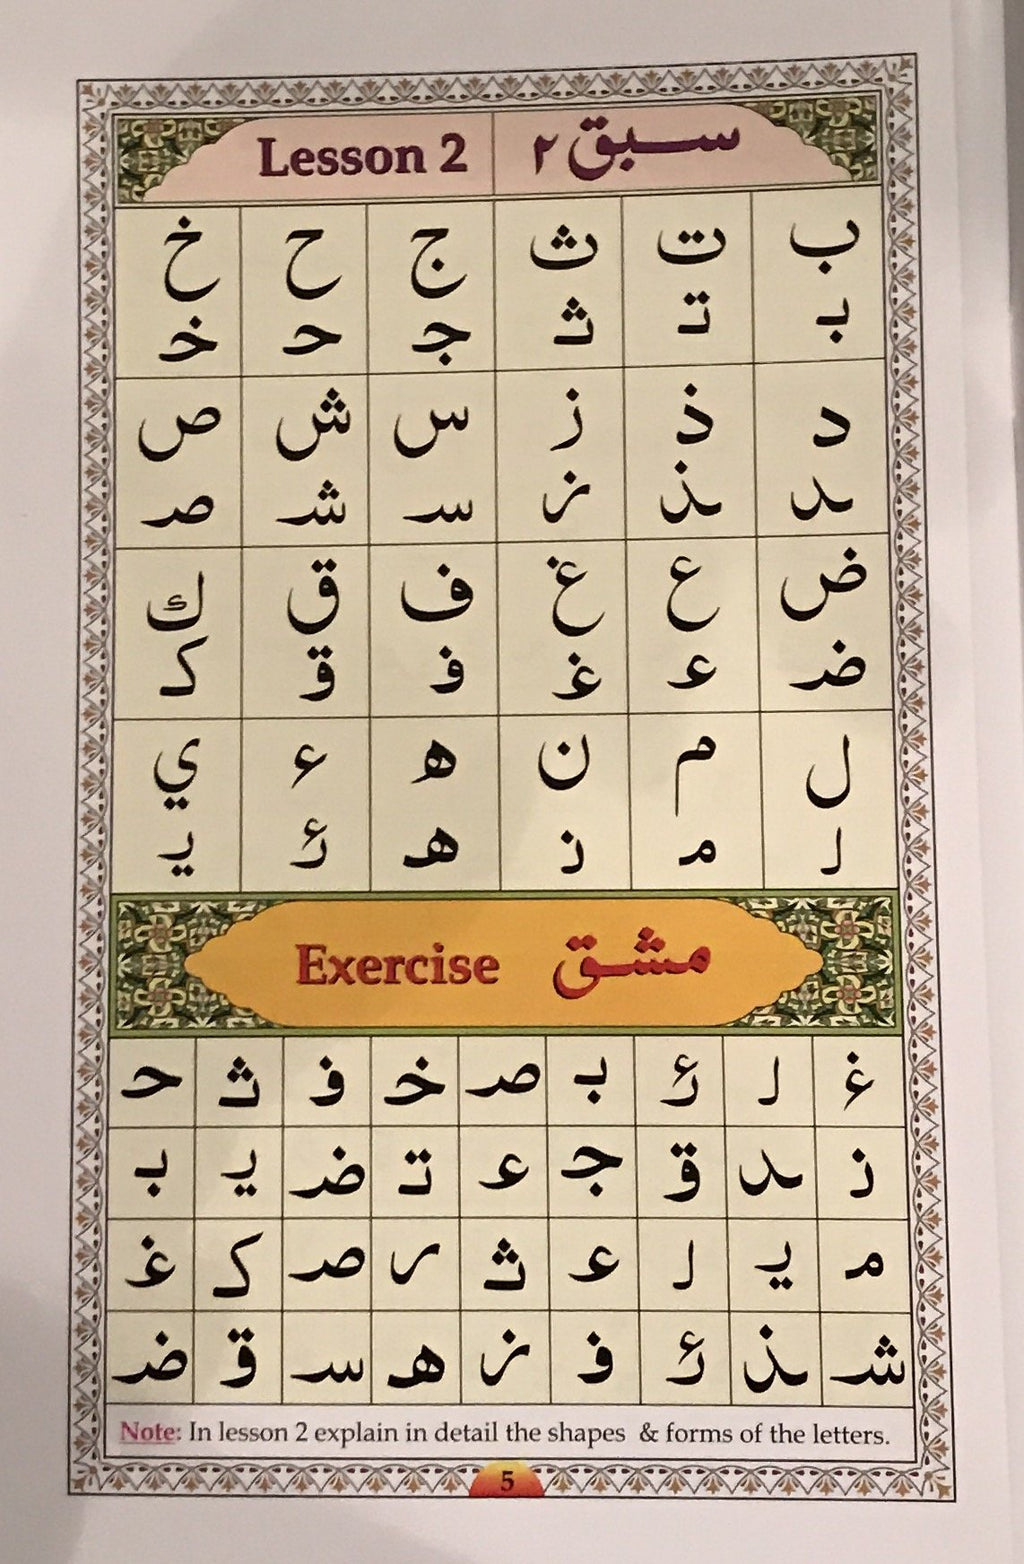 Lesson 2 سبق ٢
ب ت ث ج ح خ
بـ تـ ثـ جـ حـ خـ
د ذ ز س ش ص
ـد ـذ ـز سـ شـ صـ
ض ع غ ف ق ك
ضـ عـ غـ فـ قـ کـ
ل م ن ه ء ي
لـ مـ نـ هـ ئـ يـ
Exercise مشق
غـ لـ ئـ بـ صـ خـ فـ ثـ حـ
نـ ـد قـ جـ عـ تـ ضـ يـ بـ
مـ يـ لـ عـ ثـ ـر صـ کـ غـ
شـ ـذ ئـ فـ ـز هـ سـ قـ ضـ
Note: In lesson 2 explain in detail the shapes & forms of the letters.
5